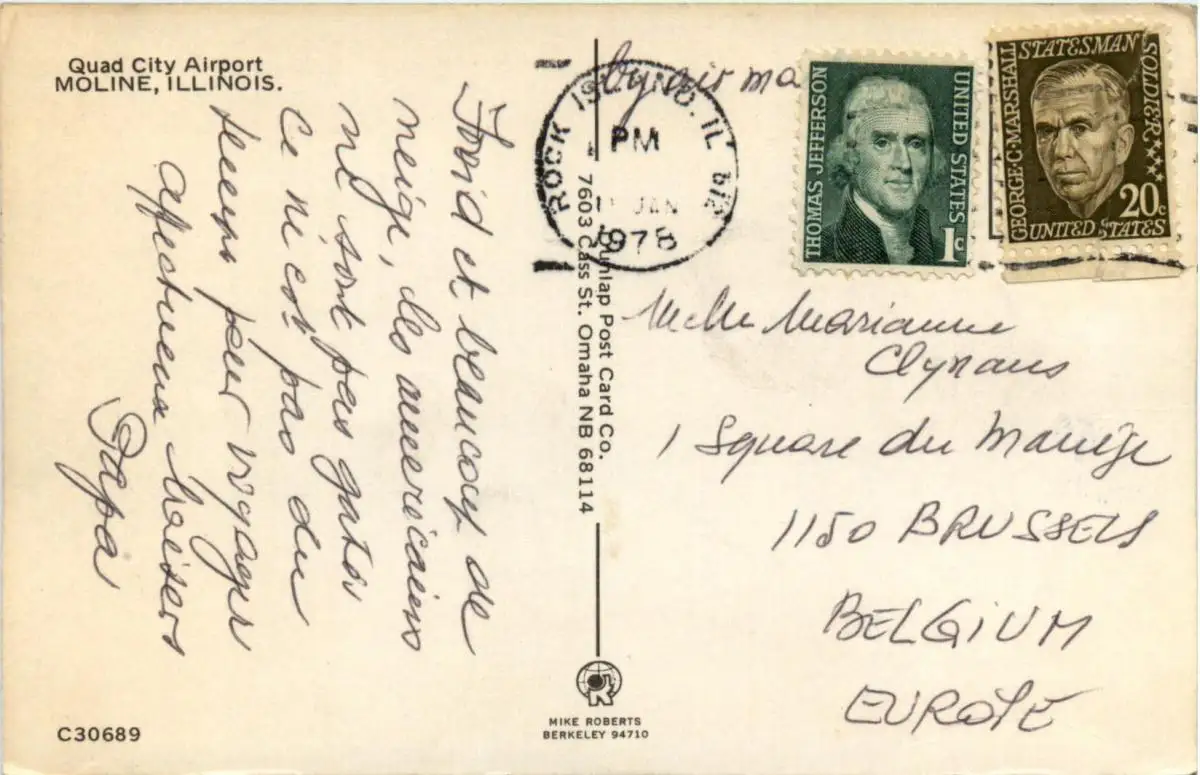 Quad City Airport
MOLINE, ILLINOIS.
Froid et beaucoup de
neige, les americains
ne sont pas gatés
Ce n'est pas du
temps pour voyager
affectueux baisers
Papa
C30689
Dunlap Post Card Co.
7603 Cass St. Omaha NB 68114
MIKE ROBERTS
BERKELEY 94710
by air ma
ROCK ISLAND, IL 612
PM
JAN
1978
THOMAS JEFFERSON
UNITED STATES
1c
GEORGE·C·MARSHALL
STATESMAN
SOLDIER
20c
UNITED STATES
Melle Marianne
Clynans
1 Square du Manège
1150 BRUSSELS
BELGIUM
EUROPE